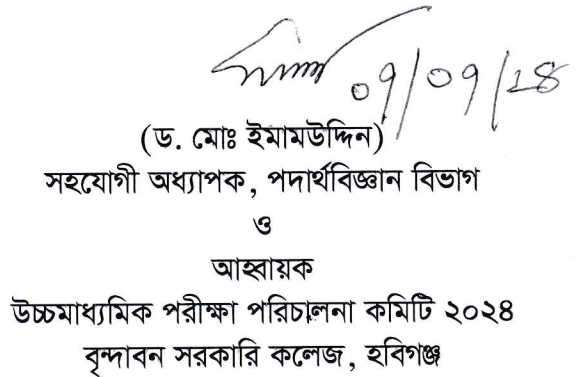 ০৭/০৭/২৪
(ড. মোঃ ইমামউদ্দিন)
সহযোগী অধ্যাপক, পদার্থবিজ্ঞান বিভাগ
ও
আহ্বায়ক
উচ্চমাধ্যমিক পরীক্ষা পরিচালনা কমিটি ২০২৪
বৃন্দাবন সরকারি কলেজ, হবিগঞ্জ